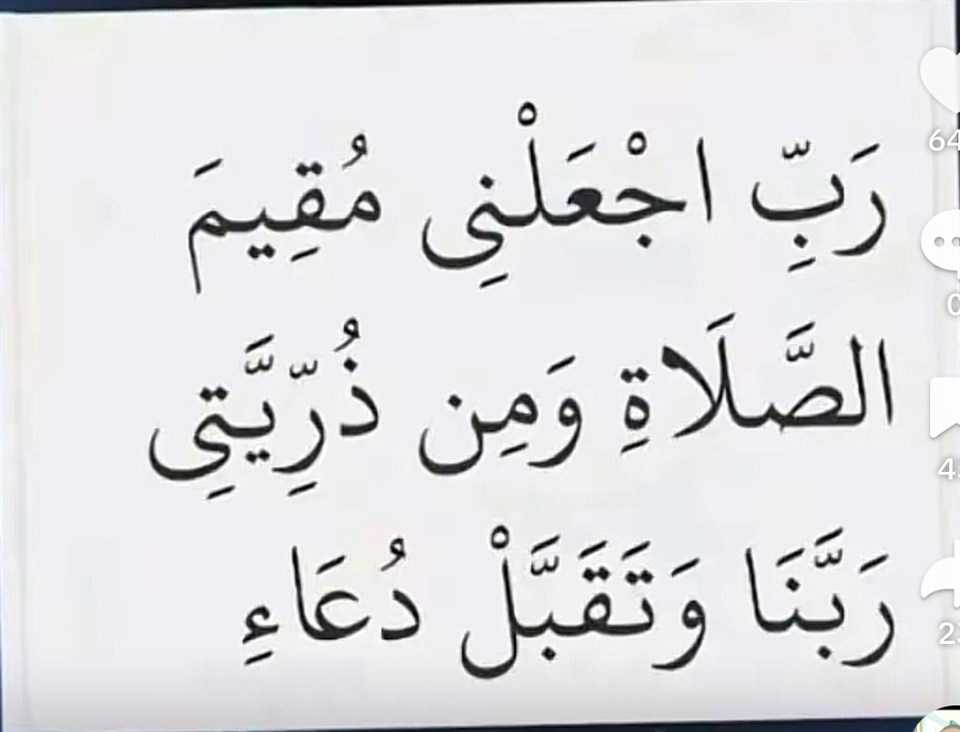 رَبِّ اجْعَلْنِى مُقِيمَ
الصَّلَاةِ وَمِن ذُرِّيَّتِى
رَبَّنَا وَتَقَبَّلْ دُعَاءِ
64
0